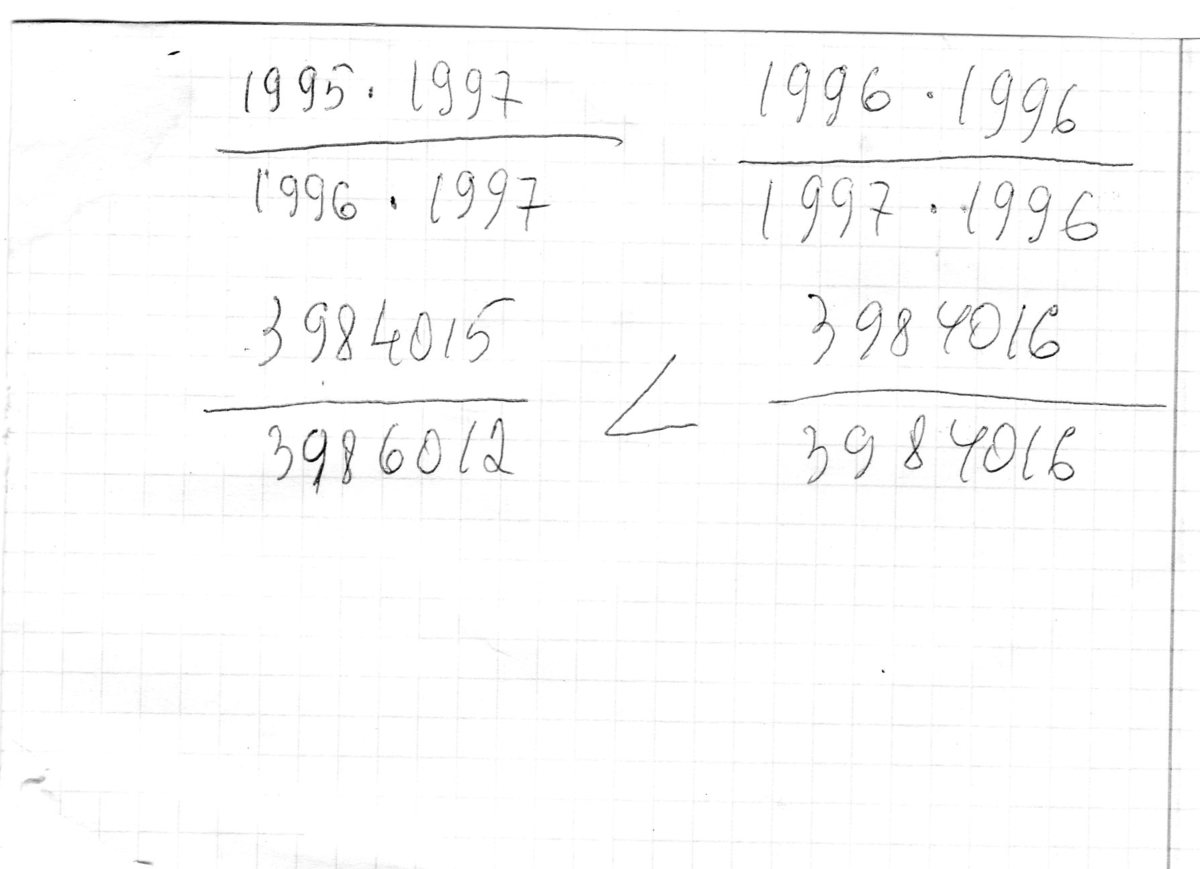 1995 · 1997 1996 · 1996
1996 · 1997 1997 · 1996
3984015 < 3984016
3986012 3984016